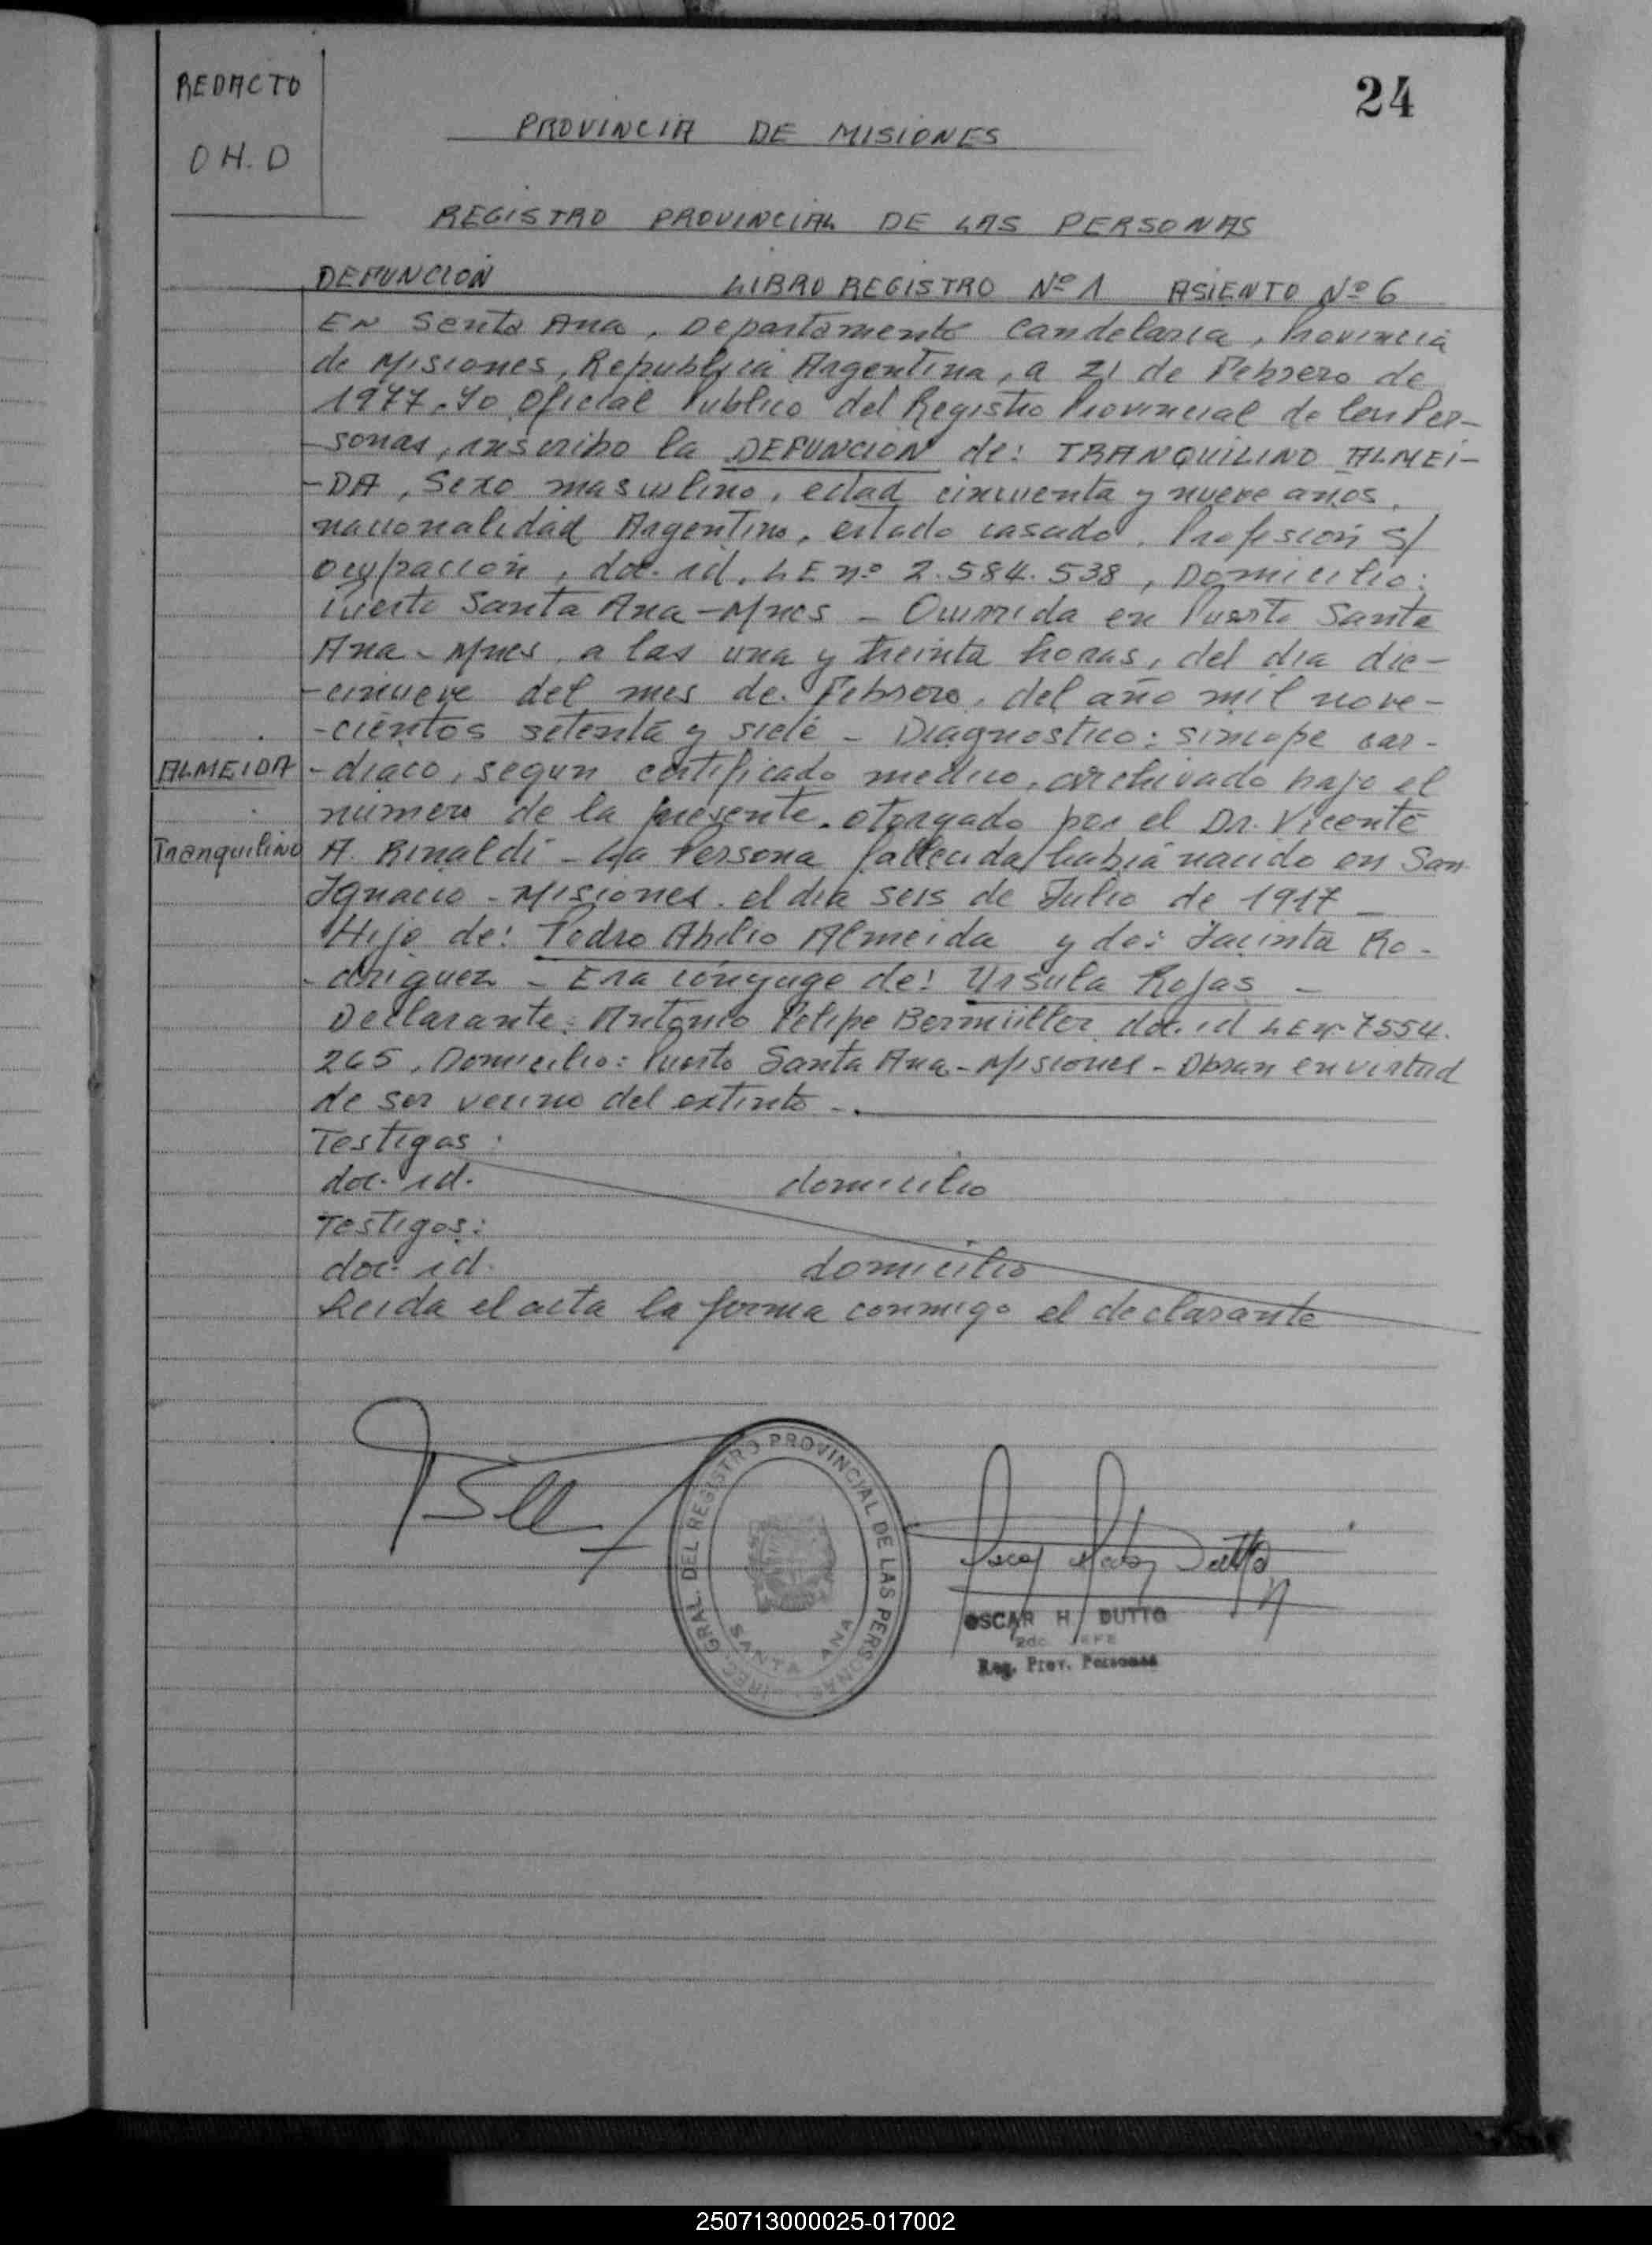 REDACTO
O H. D
24
PROVINCIA DE MISIONES
REGISTRO PROVINCIAL DE LAS PERSONAS
DEFUNCION LIBRO REGISTRO Nº 1 ASIENTO Nº 6
En Santa Ana, Departamento Candelaria, Provincia
de Misiones, Republica Argentina, a 21 de Febrero de
1977. Yo Oficial Publico del Registro Provincial de las Per-
-sonas, inscribo la DEFUNCION de: TRANQUILINO ALMEI-
-DA, Sexo masculino, edad cincuenta y nueve años,
nacionalidad Argentino, estado casado, Profesion s/
ocupacion, doc. id. LE nº 2.584.538, Domicilio:
Puerto Santa Ana - Mnes - Ocurrida en Puerto Santa
Ana - Mnes, a las una y treinta horas, del dia die-
-cinueve del mes de Febrero, del año mil nove-
-cientos setenta y siete - Diagnostico: sincope car-
ALMEIDA -diaco, segun certificado medico, archivado bajo el
numero de la presente, otorgado por el Dr. Vicente
Tranquilino A. Rinaldi - La Persona fallecida habia nacido en San
Ignacio - Misiones. el dia seis de Julio de 1917 -
Hijo de: Pedro Abilio Almeida y de: Jacinta Ro-
-driguez - Era cónyuge de: Ursula Rojas -
Declarante: Antonio Felipe Bermüller doc. id LE nº 7554.
265, Domicilio: Puerto Santa Ana - Misiones - Obran en virtud
de ser vecino del extinto -.
Testigos:
doc. id. domicilio
Testigos:
doc. id. domicilio
Leida el acta la firma conmigo el declarante
GRAL. DEL REGISTRO PROVINCIAL DE LAS PERSONAS
SANTA ANA
OSCAR H. DUTTO
2do. JEFE
Reg. Prov. Personas
250713000025-017002